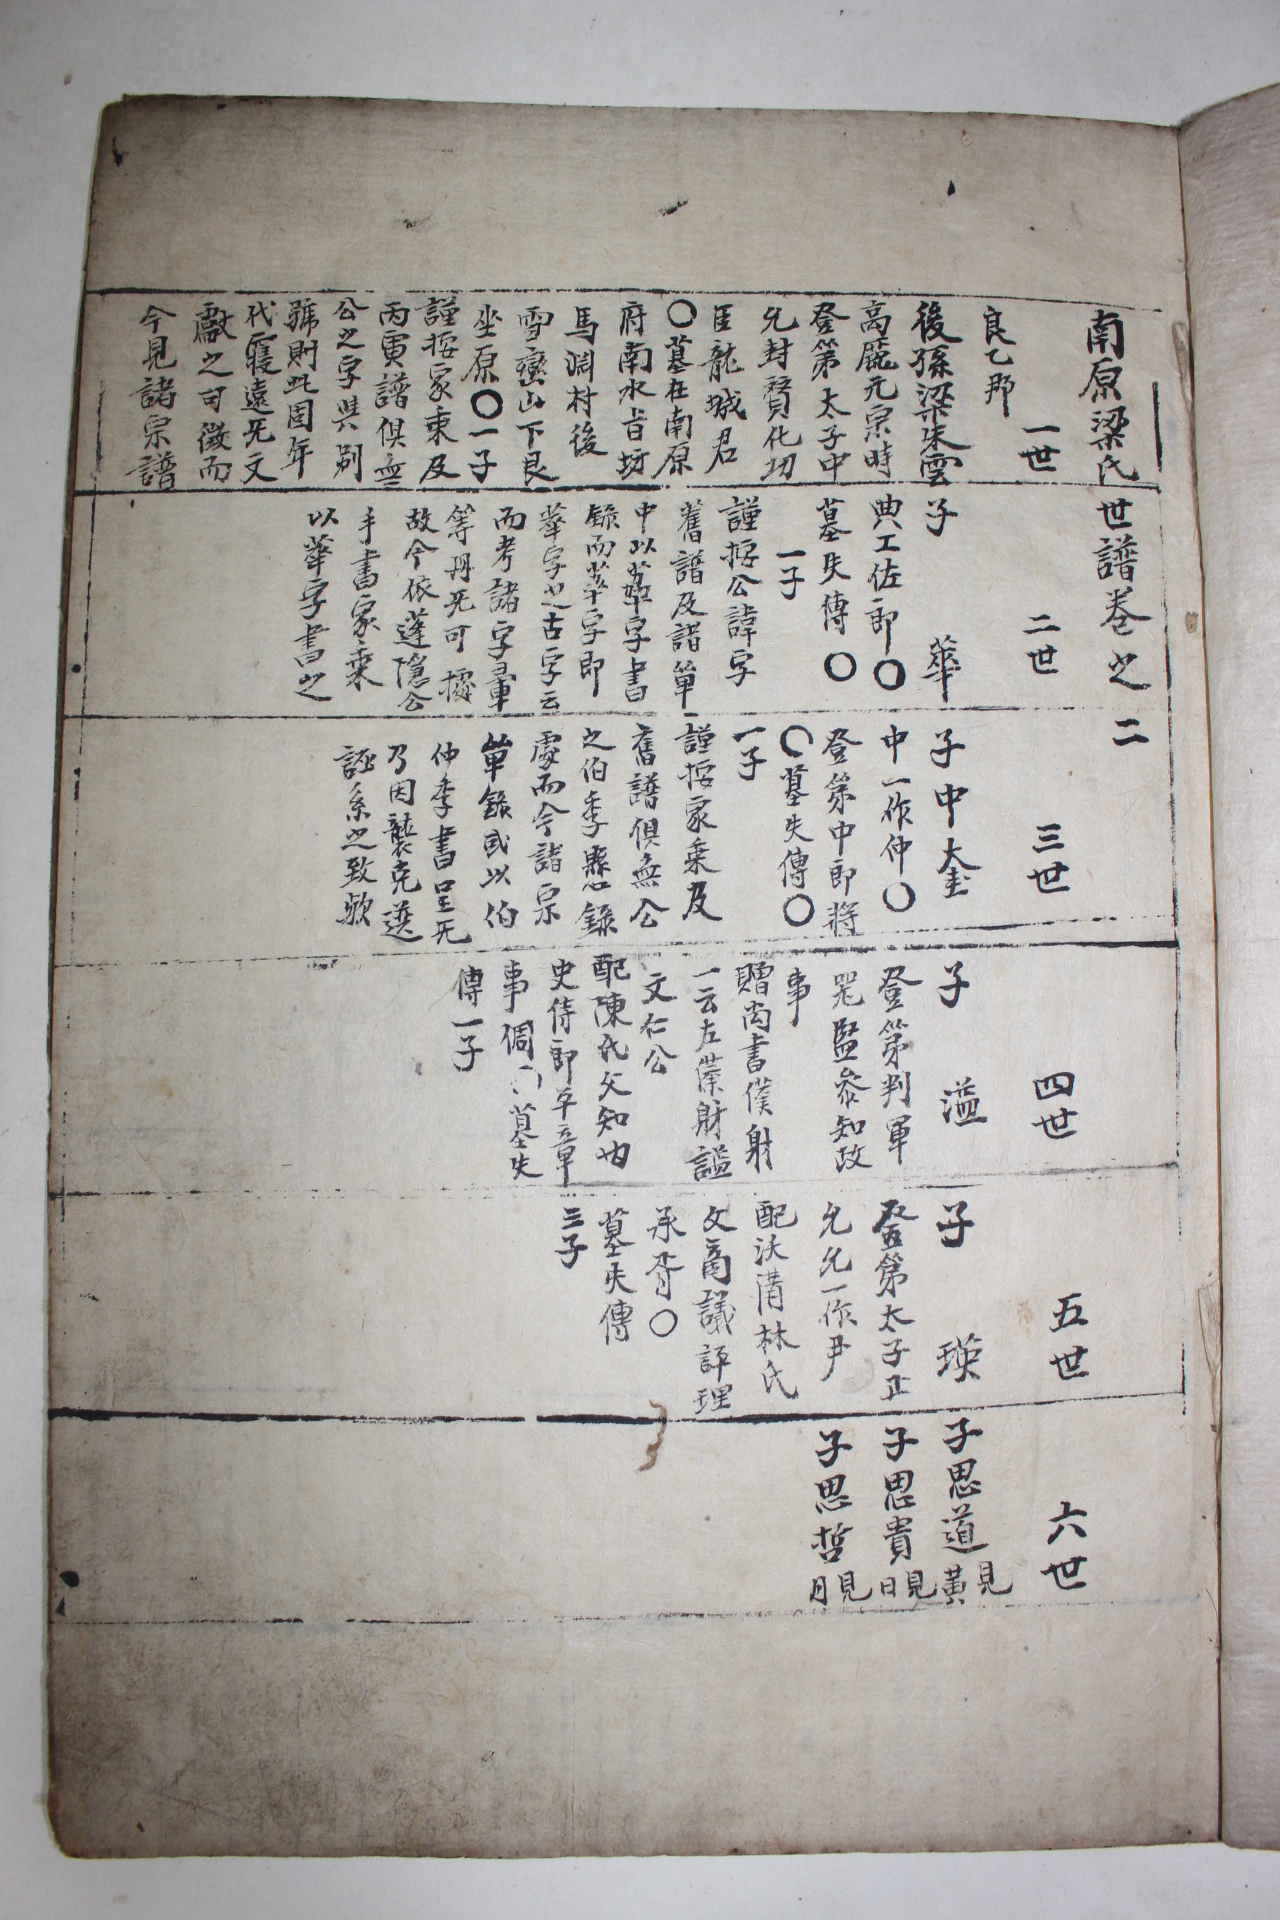 南原梁氏世譜卷之二
一世
良乙那
後孫梁朱雲
高麗元宗時
登第太子中
允封贊化功
臣龍城君
〇墓在南原
府南水旨坊
馬淵村後
雪巒山下艮
坐原〇一子
謹按家乘及
丙寅譜俱無
公之字與別
號則此固年
代寢遠無文
獻之可徵而
今見諸宗譜
二世
子 華
典工佐郎〇
墓失傳〇
一子
謹按公諱字
舊譜及諸單
中以華字書
錄而華字即
華字之古字云
而考諸字彙
等冊無可據
故今依蓬隱公
手書家乘
以華字書之
三世
子中奎
中一作仲〇
登第中郎將
〇墓失傳〇
一子
謹按家乘及
舊譜俱無公
之伯季懸錄
處而今諸宗
單錄或以伯
仲季書呈無
乃因襲克選
誣系之致歟
四世
子 溢
登第判軍
器監參知政
事
贈尚書僕射
一云左僕射謚
文仁公
配陳氏父知內
史侍郎平章
事倜〇墓失
傳一子
五世
子 瑛
登第太子正
允允一作尹
配沃溝林氏
父商議評理
承胥〇
墓失傳
三子
六世
子思道見黃
子思貴見日
子思哲見月